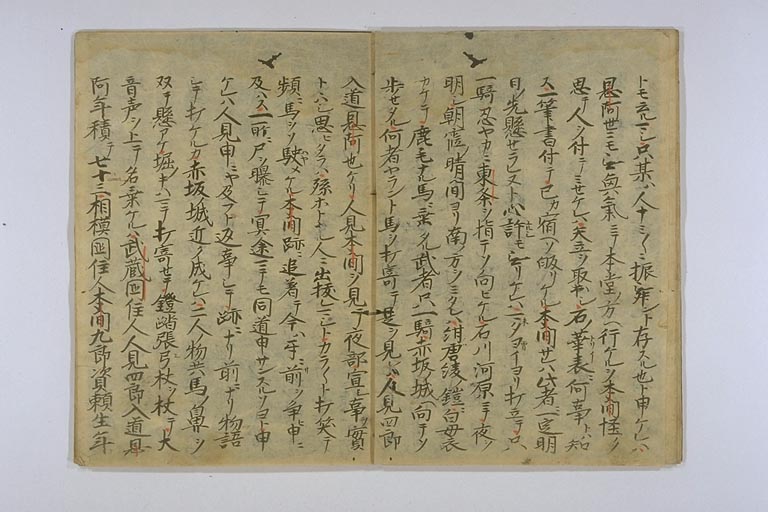 トモ云ル只某ハ人ナミ〳〵ニ振舞ント存スル也ト申ケレハ
恩阿世ニモ無興氣ニテ本堂ノ方ヘ行ケルヲ本間怪ク
思テ人ヲ付テミセケレハ矢立ヲ取出シ石ノ華表ニ何事トハ知
ス一筆書付テ己カ宿ヘソ皈リケル本間サハ此者ニ一定明
日ノ先懸セラレヌト心許モ無リケレハヨイヨリ打立テ只
一騎忍ヤカニ東条ヲ指テソ向ヒケル石川河原ニテ夜ヲ
明ス朝霞ノ晴間ヨリ南方ヲミタレハ紺唐綾鎧ニ白母衣
カケテ鹿毛ナル馬ニ乗タル武者只一騎赤坂城ヘ向テソ
歩セケル何者ヤラント馬ヲ打寄テ是ヲ見レハ人見四郎
入道恩阿也ケリ人見本間ヲ見テ夜部宣シ事ヲ實
ト思ヒタラハ孫ホトノ人ニ出抜レマシトカラ〳〵ト打笑テ
頻ニ馬ヲソ駛メケル本間跡ニ追着テ今ハ手ニ前ヲ争申ニ
及ハス一所ニ尸ヲ曝シテ冥途ニテモ同道申サンスルソヨト申
ケレハ人見申ニヤ及フト返事シテ跡ニナリ前ナリ物語
シテ打ケルカ赤坂城近ク成ケレハ二人物共馬ノ鼻ヲ
双テ懸アケ堀キハニテ打寄セテ鐙踏張弓杖ヲ杖テ大
音声シトテ名乗ケルハ武蔵国住人人見四郎入道恩
阿年積テ七十三相模国住人本間九郎資頼生年